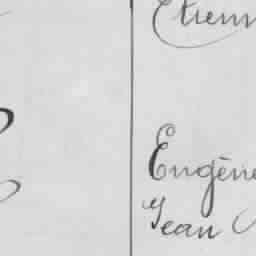 Etienn
Eugène
Jean